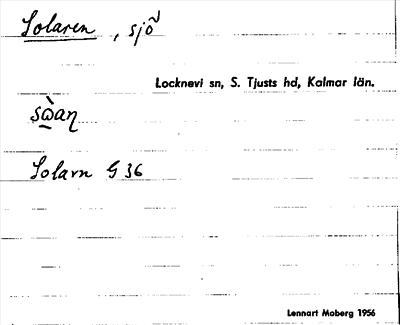 Solaren, sjö
Locknevi sn, S. Tjusts hd, Kalmar län.
Solarn G 36
Lennart Moberg 1956